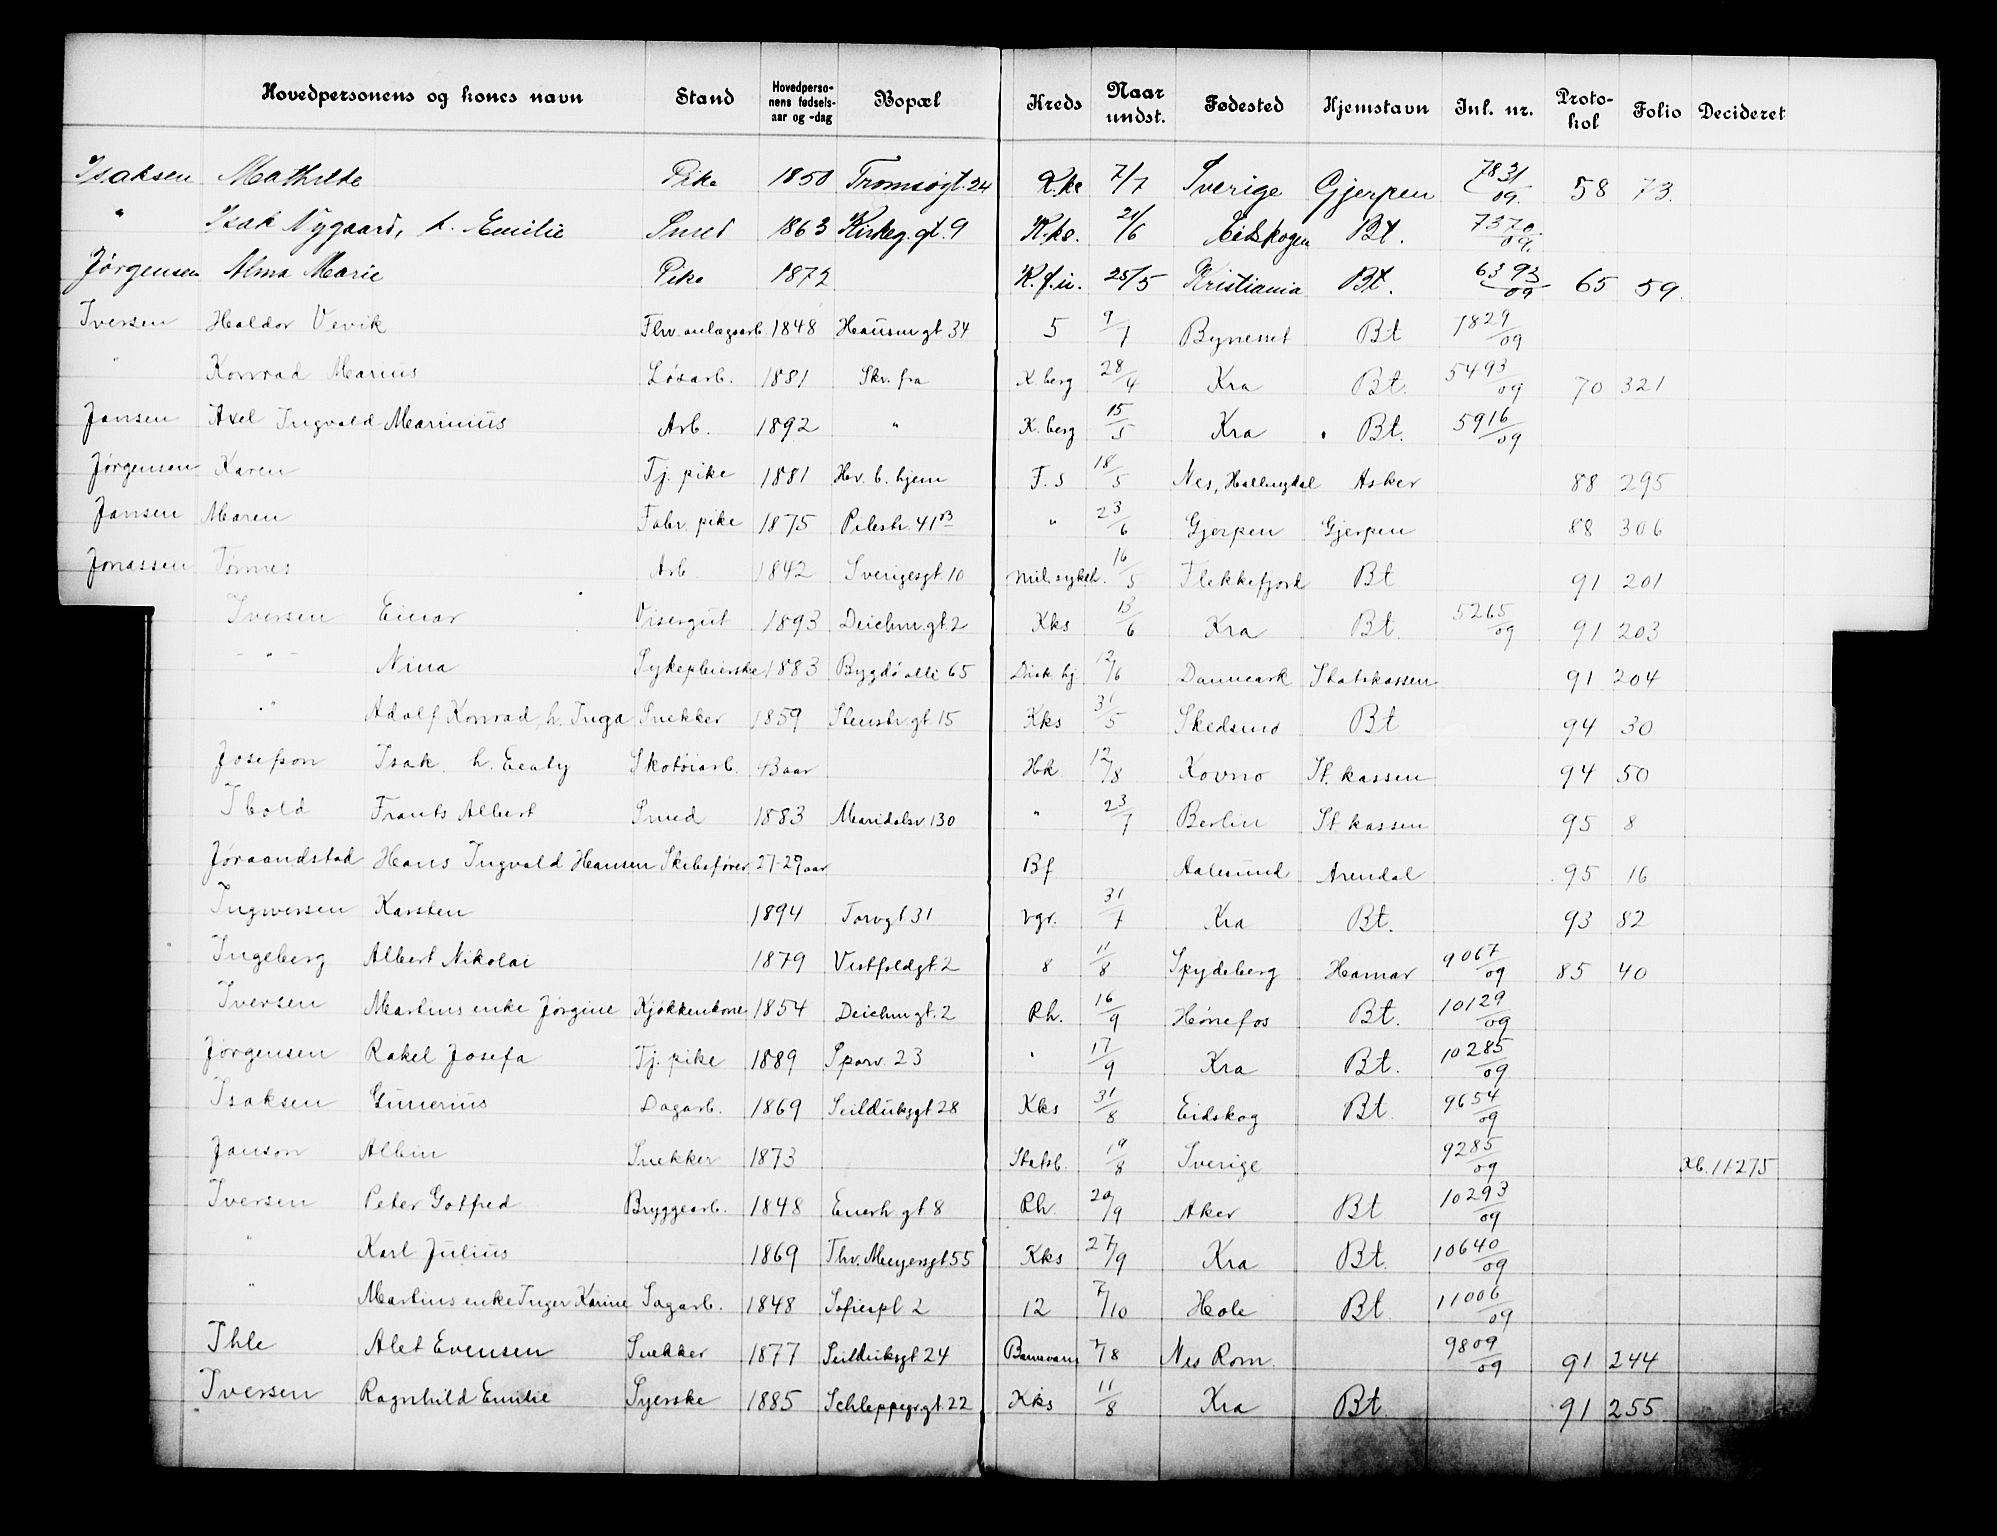 Hovedpersonens og kones navn Stand Hovedpersonens fødselsaar og -dag Bopæl Kreds Naar undst. Fødested Hjemstavn Inl. nr. Protokol Folio Decideret
Isaksen Mathilde Pike 1850 Tromsøgt. 24 K.ks 7/7 Sverige Gjerpen 7831/09. 58 73.
" Isak Nygaard, h. Emilie Smed 1863 Kirkeg. gt. 9 K.ks. 21/6 Eidskogen Bt. 7370/09.
Jørgensen Alma Marie Pike 1872 K.f.u. 25/5 Kristiania Bt. 6393/09 65 59.
Iversen Haldor Vevik Fhv. anlægsarb. 1848 Hausmgt 34 5 9/7 Bynesset Bt 7829/09
" Konrad Marius Løsarb. 1881 Skr. fra K. berg 28/4 Kra Bt. 5493/09 70 321
Jansen Axel Ingvald Marinius Arb. 1892 " K. berg 15/5 Kra Bt. 5916/09
Jørgensen Karen Tj. pike 1881 Hv. b. hjem F. S 18/5 Nes, Hallingdal Asker 88 295
Jansen Maren Fabr. pike 1875 Pilestr. 41 B " 23/6 Gjerpen Gjerpen 88 306
Jonassen Tønnes Arb 1842 Sverigesgt 10 Mil. sykeh. 16/5 Flekkefjord Bt 91 201
Iversen Einar Visergut 1893 Deichm. gt. 2 Kks 13/6 Kra Bt. 5265/09 91 203
- " - Nina Sykepleierske 1883 Bygdø alle 65 Diak. hj 12/6 Danmark Statskassen 91 204
" Adolf Konrad, h. Inga Snekker 1859 Stenstr gt 15 Kks 31/5 Skedsmo Bt 94 30
Josefson Isak h. Skotøiarb. 43 aar Hk. 12/8 Kovno St. kassen 94 50
Ibold Frants Albert Smed 1883 Maridalsv 130 " 23/7 Berlin St kassen 95 8
Jøraandstad Hans Ingvald Hansen Skibsfører 27-29 aar Bf Aalesund Arendal 95 16
Ingwersen Karsten 1894 Torvgt 31 Vgr. 31/7 Kra Bt. 93 82
Ingeberg Albert Nikolai 1879 Vestfoldgt. 2 8 11/8 Spydeberg Hamar 9067/09 85 40
Iversen Martins enke Jørgine Kjøkkenkone 1854 Deichmgt. 2 Rh. 16/9 Hønefos Bt. 10129/09
Jørgensen Rakel Josefa Tj. pike 1889 Sporv. 23 " 17/9 Kra Bt. 10285/09
Isaksen Gunerius Dagarb. 1869 Seilduksgt 28 Kks 31/8 Eidskog Bt. 9654/09
Janson Albin Snekker 1873 Statsb. 19/8 Sverige 9285/09 Kb. 11275
Iversen Peter Gotfred Bryggearb. 1848 Enerh. gt. 8 Rh. 20/9 Aker Bt 10293/09
" Karl Julius 1869 Thv. Meyersgt 55 Kks 27/9 Kra Bt. 10640/09
" Martins enke Inger Karine Dagarb. 1848 Sofiespl 2 12 7/10 Hole Bt 11006/09
Ihle Alet Evensen Snekker 1877 Seilduksgt 24 Barnevern 7/8 Nes Rom. 9809/09 91 244
Iversen Ragnhild Emilie Syerske 1885 Schleppegrgt 22 Kks 11/8 Kra Bt 91 255